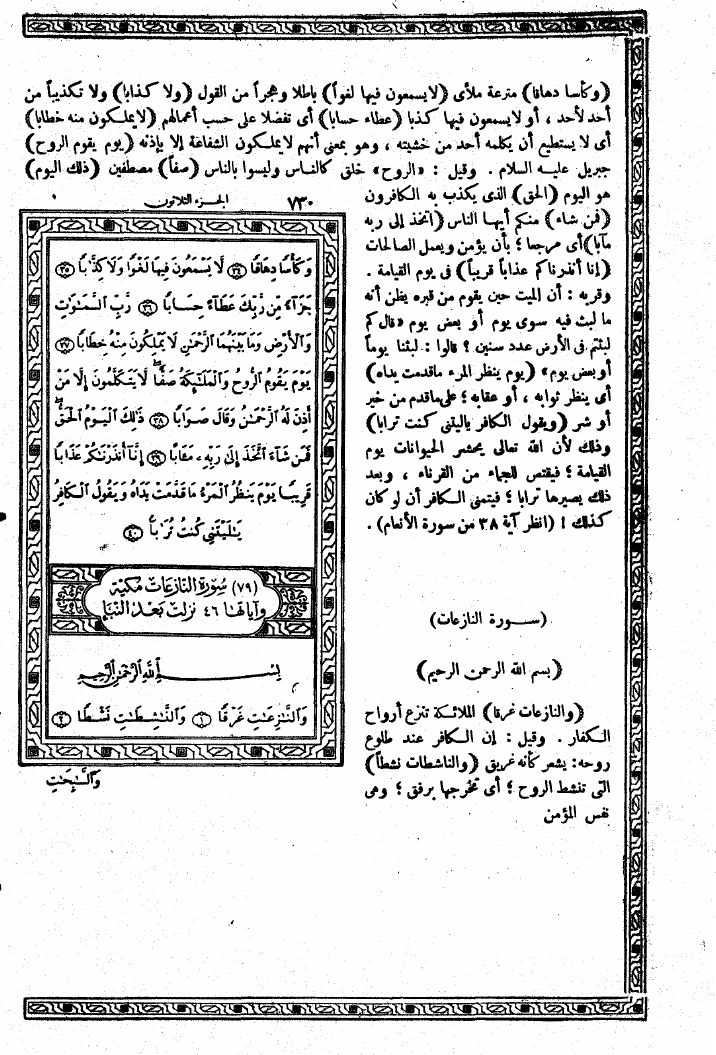 (وكأسا دهاقا) مترعة ملأى (لايسمعون فيها لغواً) باطلا وهجراً من القول (ولا كذابا) ولا تكذيباً من
أحد لأحد ، أو لايسمعون فيها كذبا (عطاء حسابا) أى تفضلا على حسب أعمالهم (لايملكون منه خطابا)
أى لا يستطيع أن يكلمه أحد من خشيته ، وهو بمعنى أنهم لايملكون الشفاعة إلا بإذنه (يوم يقوم الروح)
جبريل عليه السلام . وقيل : «الروح» خلق كالناس وليسوا بالناس (صفاً) مصطفين (ذلك اليوم)
هو اليوم (الحق) الذى يكذب به الكافرون
(فمن شاء) منكم أيها الناس (اتخذ إلى ربه
مآبا) أى مرجعا ؛ بأن يؤمن ويعمل الصالحات
(إنا أنذرناكم عذاباً قريباً) فى يوم القيامة .
وقربه : أن الميت حين يقوم من قبره يظن أنه
ما لبث فيه سوى يوم أو بعض يوم «قال كم
لبثتم فى الأرض عدد سنين ؟ قالوا : لبثنا يوماً
أو بعض يوم» (يوم ينظر المرء ماقدمت يداه)
أى ينظر ثوابه ، أو عقابه ؛ على ماقدم من خير
أو شر (ويقول الكافر ياليتنى كنت ترابا)
وذلك لأن الله تعالى يحشر الحيوانات يوم
القيامة ؛ فيقتص للجماء من القرناء ، وبعد
ذلك يصيرها ترابا ؛ فيتمنى الكافر أن لو كان
كذلك ! (انظر آية ٣٨ من سورة الأنعام) .
(سورة النازعات)
(بسم الله الرحمن الرحيم)
(والنازعات غرقا) الملائكة تنزع أرواح
الكفار . وقيل : إن الكافر عند طلوع
روحه : يشعر كأنه غريق (والناشطات نشطاً)
التى تنشط الروح ؛ أى تخرجها برفق ؛ وهى
نفس المؤمن
٧٣٠ الجزء الثلاثون
وَكَأْسًا دِهَاقًا ٣٤ لَّا يَسْمَعُونَ فِيهَا لَغْوًا وَلَا كِذَّٰبًا ٣٥
جَزَآءً مِّن رَّبِّكَ عَطَآءً حِسَابًا ٣٦ رَّبِّ ٱلسَّمَٰوَٰتِ
وَٱلْأَرْضِ وَمَا بَيْنَهُمَا ٱلرَّحْمَٰنِ لَا يَمْلِكُونَ مِنْهُ خِطَابًا ٣٧
يَوْمَ يَقُومُ ٱلرُّوحُ وَٱلْمَلَٰٓئِكَةُ صَفًّا لَّا يَتَكَلَّمُونَ إِلَّا مَنْ
أَذِنَ لَهُ ٱلرَّحْمَٰنُ وَقَالَ صَوَابًا ٣٨ ذَٰلِكَ ٱلْيَوْمُ ٱلْحَقُّ
فَمَن شَآءَ ٱتَّخَذَ إِلَىٰ رَبِّهِۦ مَـَٔابًا ٣٩ إِنَّآ أَنذَرْنَٰكُمْ عَذَابًا
قَرِيبًا يَوْمَ يَنظُرُ ٱلْمَرْءُ مَا قَدَّمَتْ يَدَاهُ وَيَقُولُ ٱلْكَافِرُ
يَٰلَيْتَنِى كُنتُ تُرَٰبًۢا ٤٠
(٧٩) سُورَة النَّازعَات مَكيّة
وآياتها ٤٦ نزلت بَعْد النبَإ
بِسْمِ ٱللَّهِ ٱلرَّحْمَٰنِ ٱلرَّحِيمِ
وَٱلنَّٰزِعَٰتِ غَرْقًا ١ وَٱلنَّٰشِطَٰتِ نَشْطًا ٢
وَٱلسَّٰبِحَٰتِ